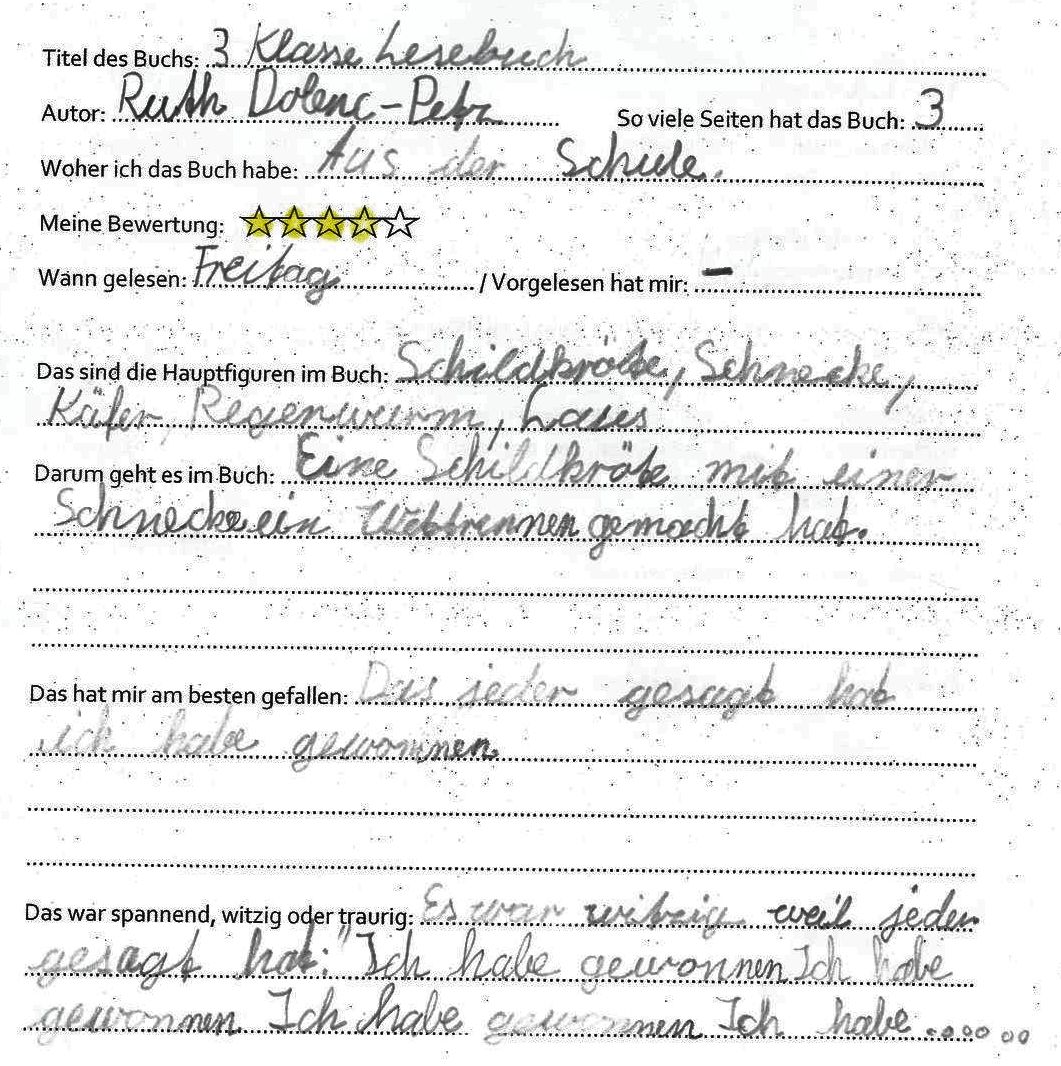 Titel des Buchs: 3 Klasse Lesebuch
Autor: Ruth Dolenc-Petz So viele Seiten hat das Buch: 3
Woher ich das Buch habe: Aus der Schule.
Meine Bewertung:
Wann gelesen: Freitag / Vorgelesen hat mir: -
Das sind die Hauptfiguren im Buch: Schildkröte, Schnecke,
Käfer, Regenwurm, Laus
Darum geht es im Buch: Eine Schildkröte mit einer
Schnecke ein Wettrennen gemacht hat.
Das hat mir am besten gefallen: Das jeder gesagt hat
ich habe gewonnen.
Das war spannend, witzig oder traurig: Es war witzig weil jeder
gesagt hat: "Ich habe gewonnen Ich habe
gewonnen Ich habe gewonnen Ich habe ........